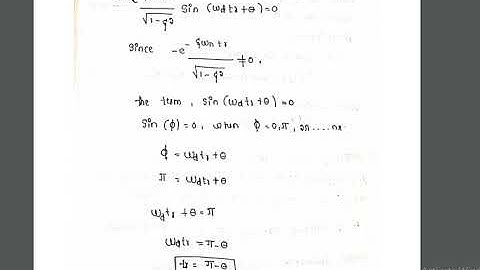 √1-ξ² sin (ωdtr+θ)=0
Since -e^-ξωntr / √1-ξ² ≠0.
the term, sin(ωdtr+θ)=0
Sin (ϕ)=0, when ϕ=0,π,2π.....nπ
ϕ = ωdtr+θ
π = ωdtr+θ
ωdtr +θ =π
ωdtr =π-θ
tr = π-θ